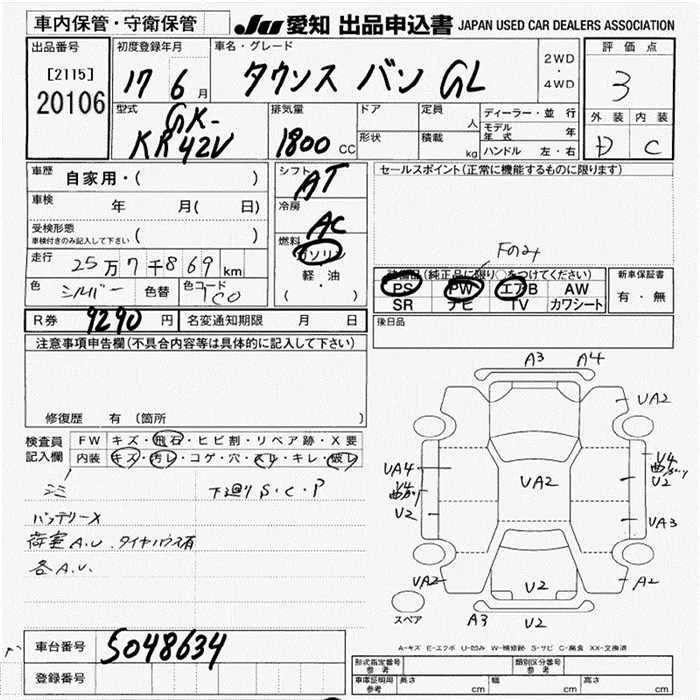 車内保管・守衛保管
JU 愛知 出品申込書 JAPAN USED CAR DEALERS ASSOCIATION
出品番号
[2115]
20106
初度登録年月
17 6月
車名・グレード
タウンス バン GL
2WD
・
4WD
評価点
3
外装 内装
D C
型式
GK-
KR42V
排気量
1800 CC
ドア
形状
定員
人
積載
kg
ディーラー・並行
モデル年式 年
ハンドル 左・右
車歴
自家用・( )
車検
年 月(日)
受検形態
車検付きのみ記入して下さい ( )
走行
25万7千869km
色 シルバー 色替 色コード TCO
シフト
AT
冷房
AC
燃料
ガソリン
軽・油
( )
セールスポイント(正常に機能するものに限ります)
Fのみ
装備品(純正品に限り○をつけてください)
PS PW エアB AW
SR ナビ TV カワシート
新車保証書
有・無
R券 9290円 名変通知期限 月 日
後日品
注意事項申告欄(不具合内容等は具体的に記入して下さい)
修復歴 有 (箇所 )
検査員
記入欄
FW キズ・飛石・ヒビ割・リペア跡・X要
内装 キズ・汚レ・コゲ・穴・スレ・キレ・破レ
下廻り S・C・P
バッテリーX
荷室A.U.タイヤハウス有
各A.U.
A3 A4
UA2
UA4
U4
U2
UA2
U4
U2
UA3
UA2
U2
A2
A3 U2
スペア
A-キズ E-エクボ U-凹み W-補修跡 S-サビ C-腐食 XX-交換済
車台番号 5048634
登録番号
形式指定番号
参考
類別区分番号
参考
車庫証明用
参考
長さ cm 幅 cm 高さ cm